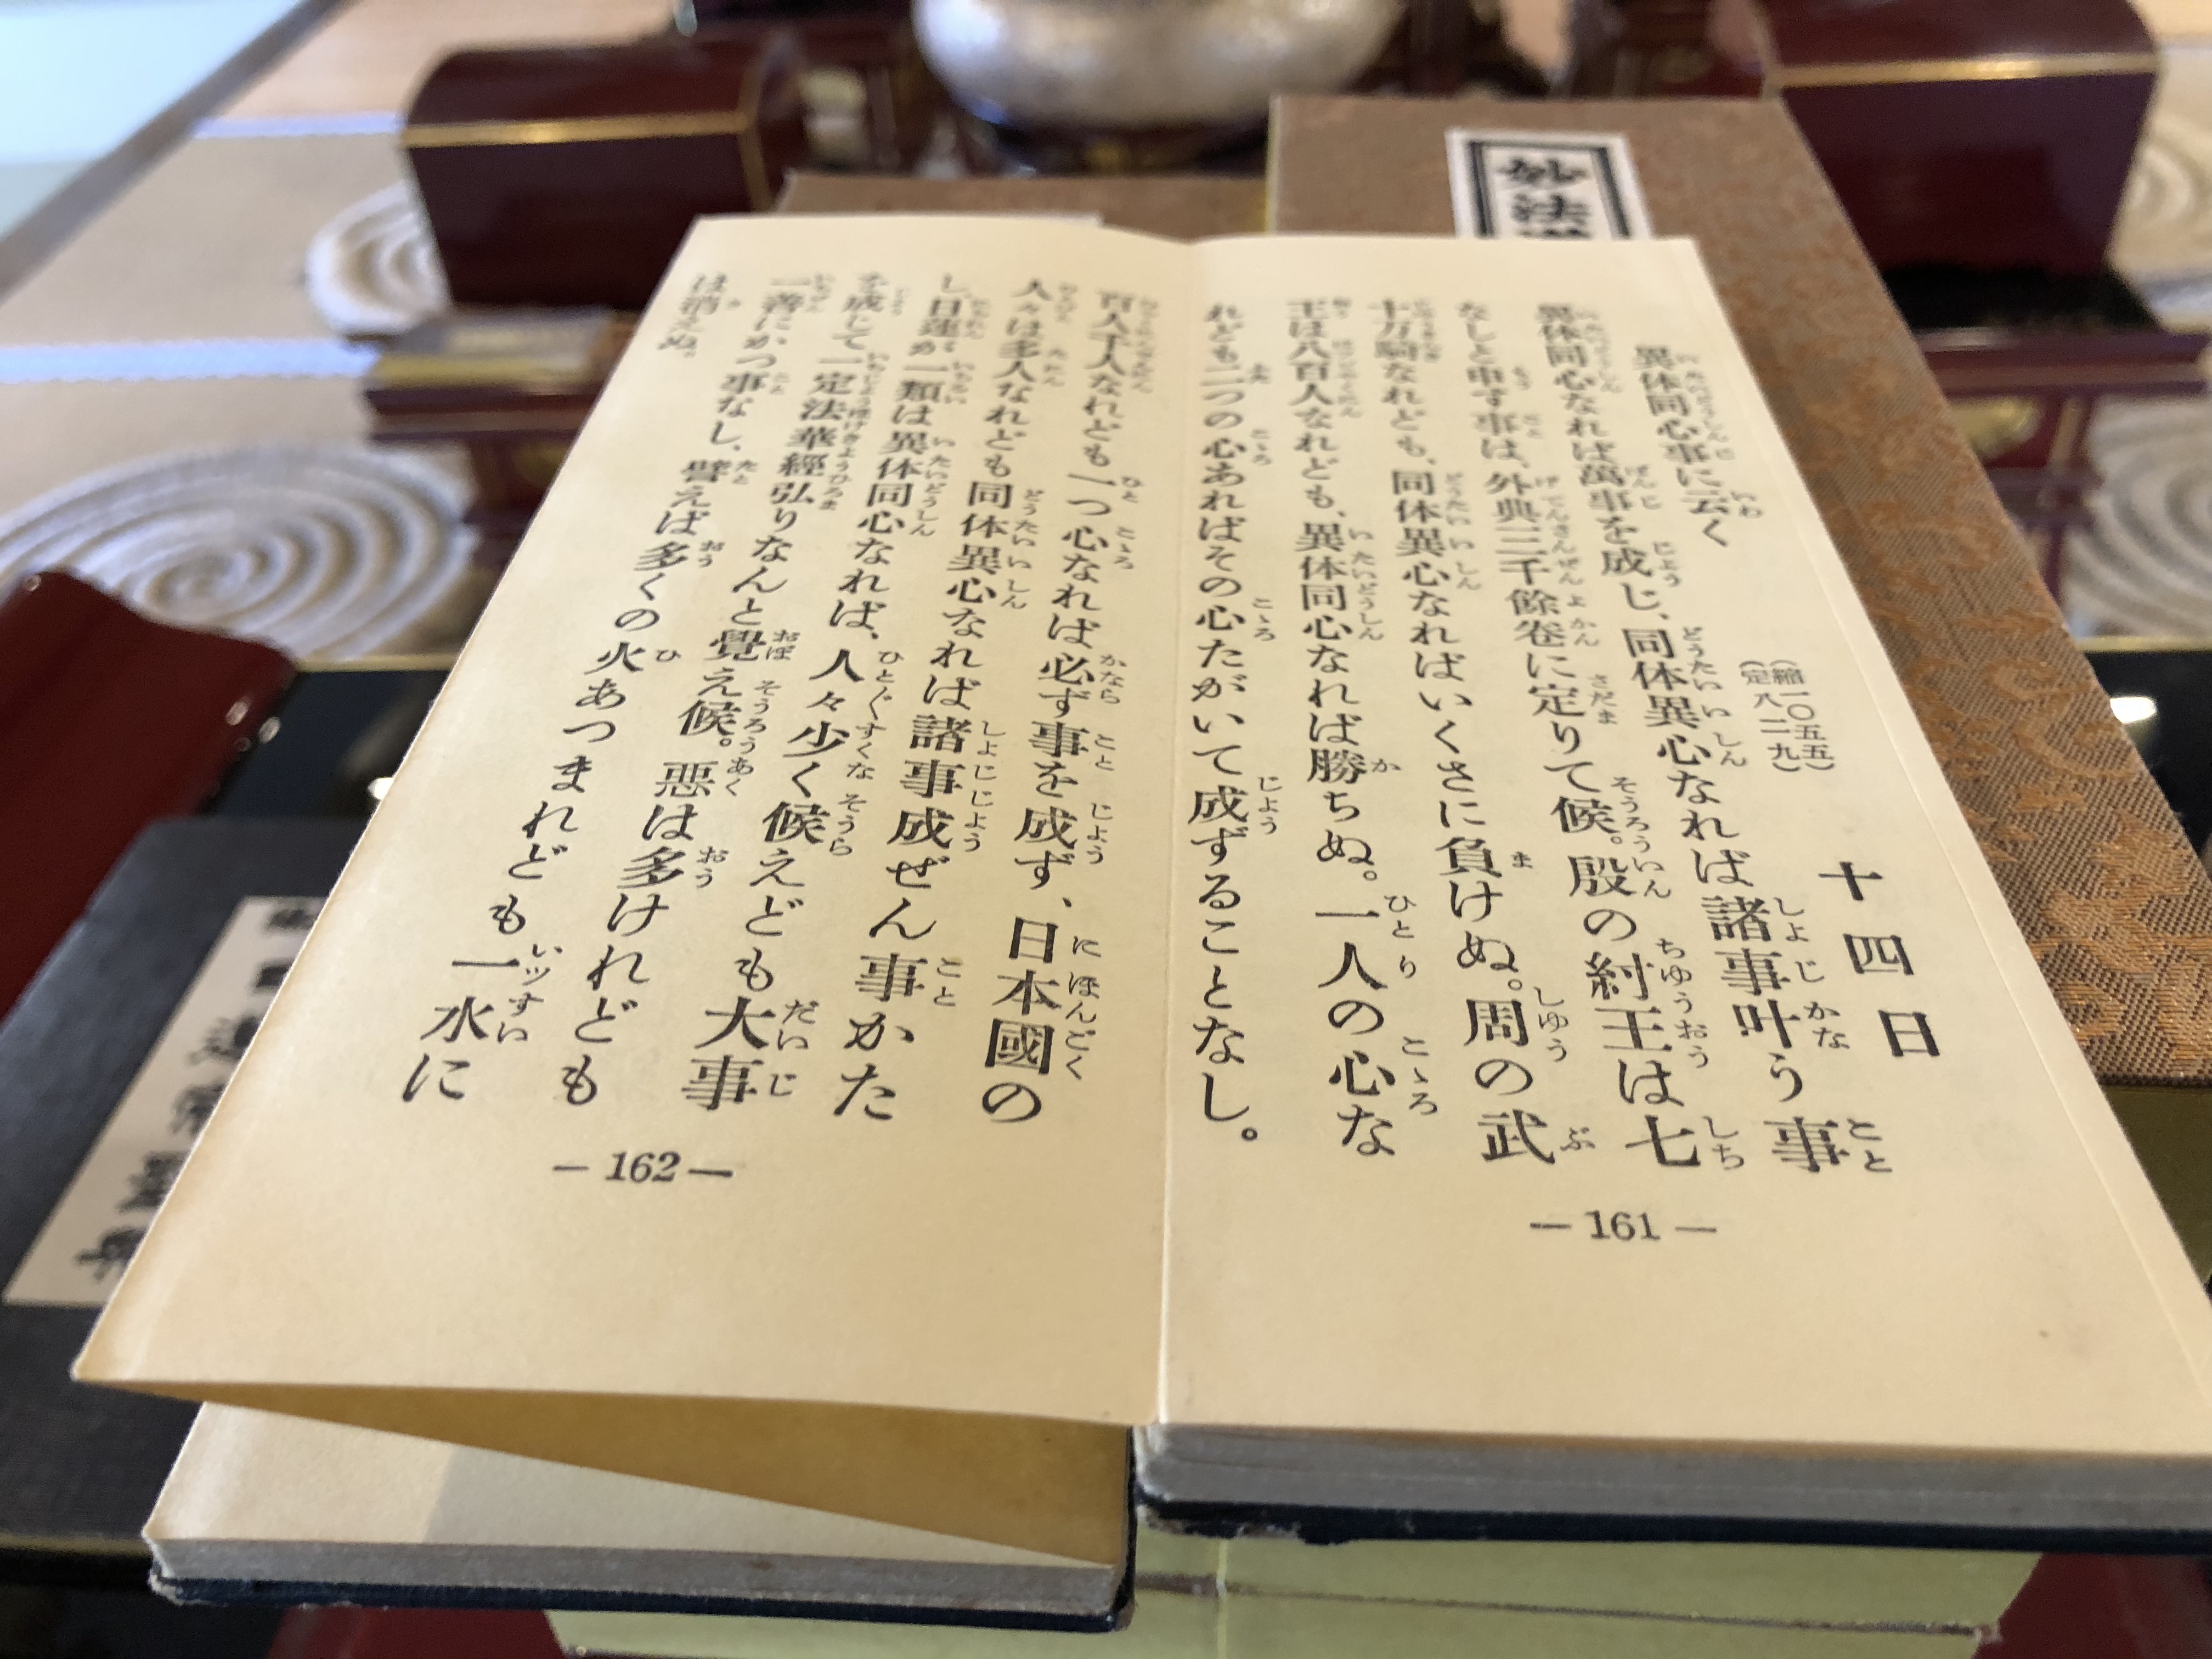 十四日
異体同心事に云く
(縮一〇五五)
(定八二九)
異体同心なれば萬事を成じ、同体異心なれば諸事叶う事
なしと申す事は、外典三千餘巻に定りて候。殷の紂王は七
十万騎なれども、同体異心なればいくさに負けぬ。周の武
王は八百人なれども、異体同心なれば勝ちぬ。一人の心な
れども二つの心あればその心たがいて成ずることなし。
百人千人なれども一つ心なれば必ず事を成ず、日本國の
人々は多人なれども同体異心なれば諸事成ぜん事かた
し、日蓮が一類は異体同心なれば、人々少く候えども大事
を成じて一定法華經弘りなんと覺え候。悪は多けれども
一善にかつ事なし、譬えば多くの火あつまれども一水に
は消えぬ。
— 161 —
— 162 —
妙法